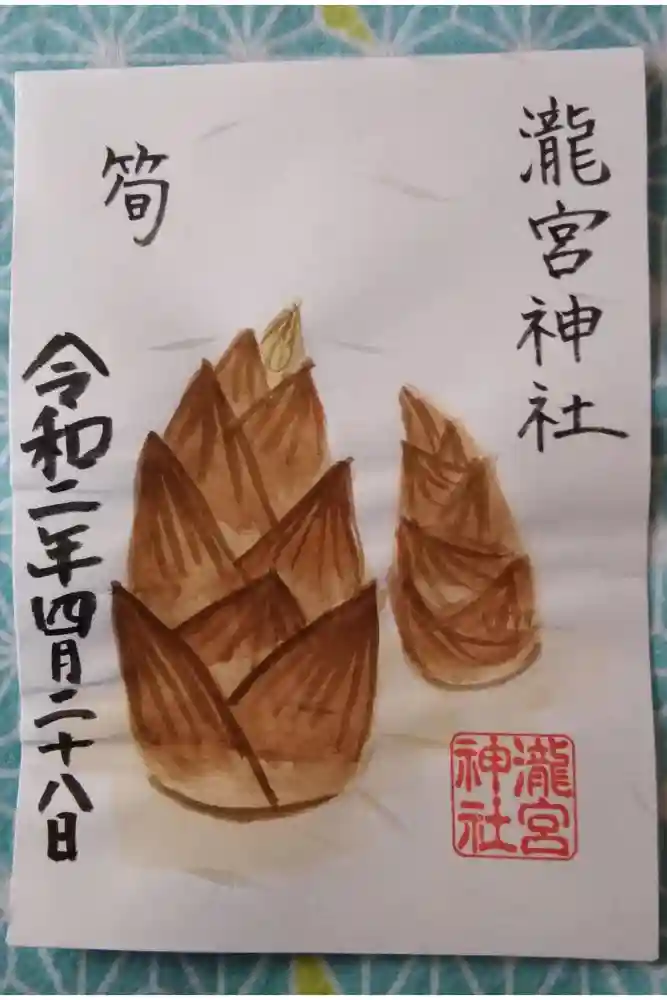 瀧宮神社
筍
令和二年四月二十八日
瀧宮
神社